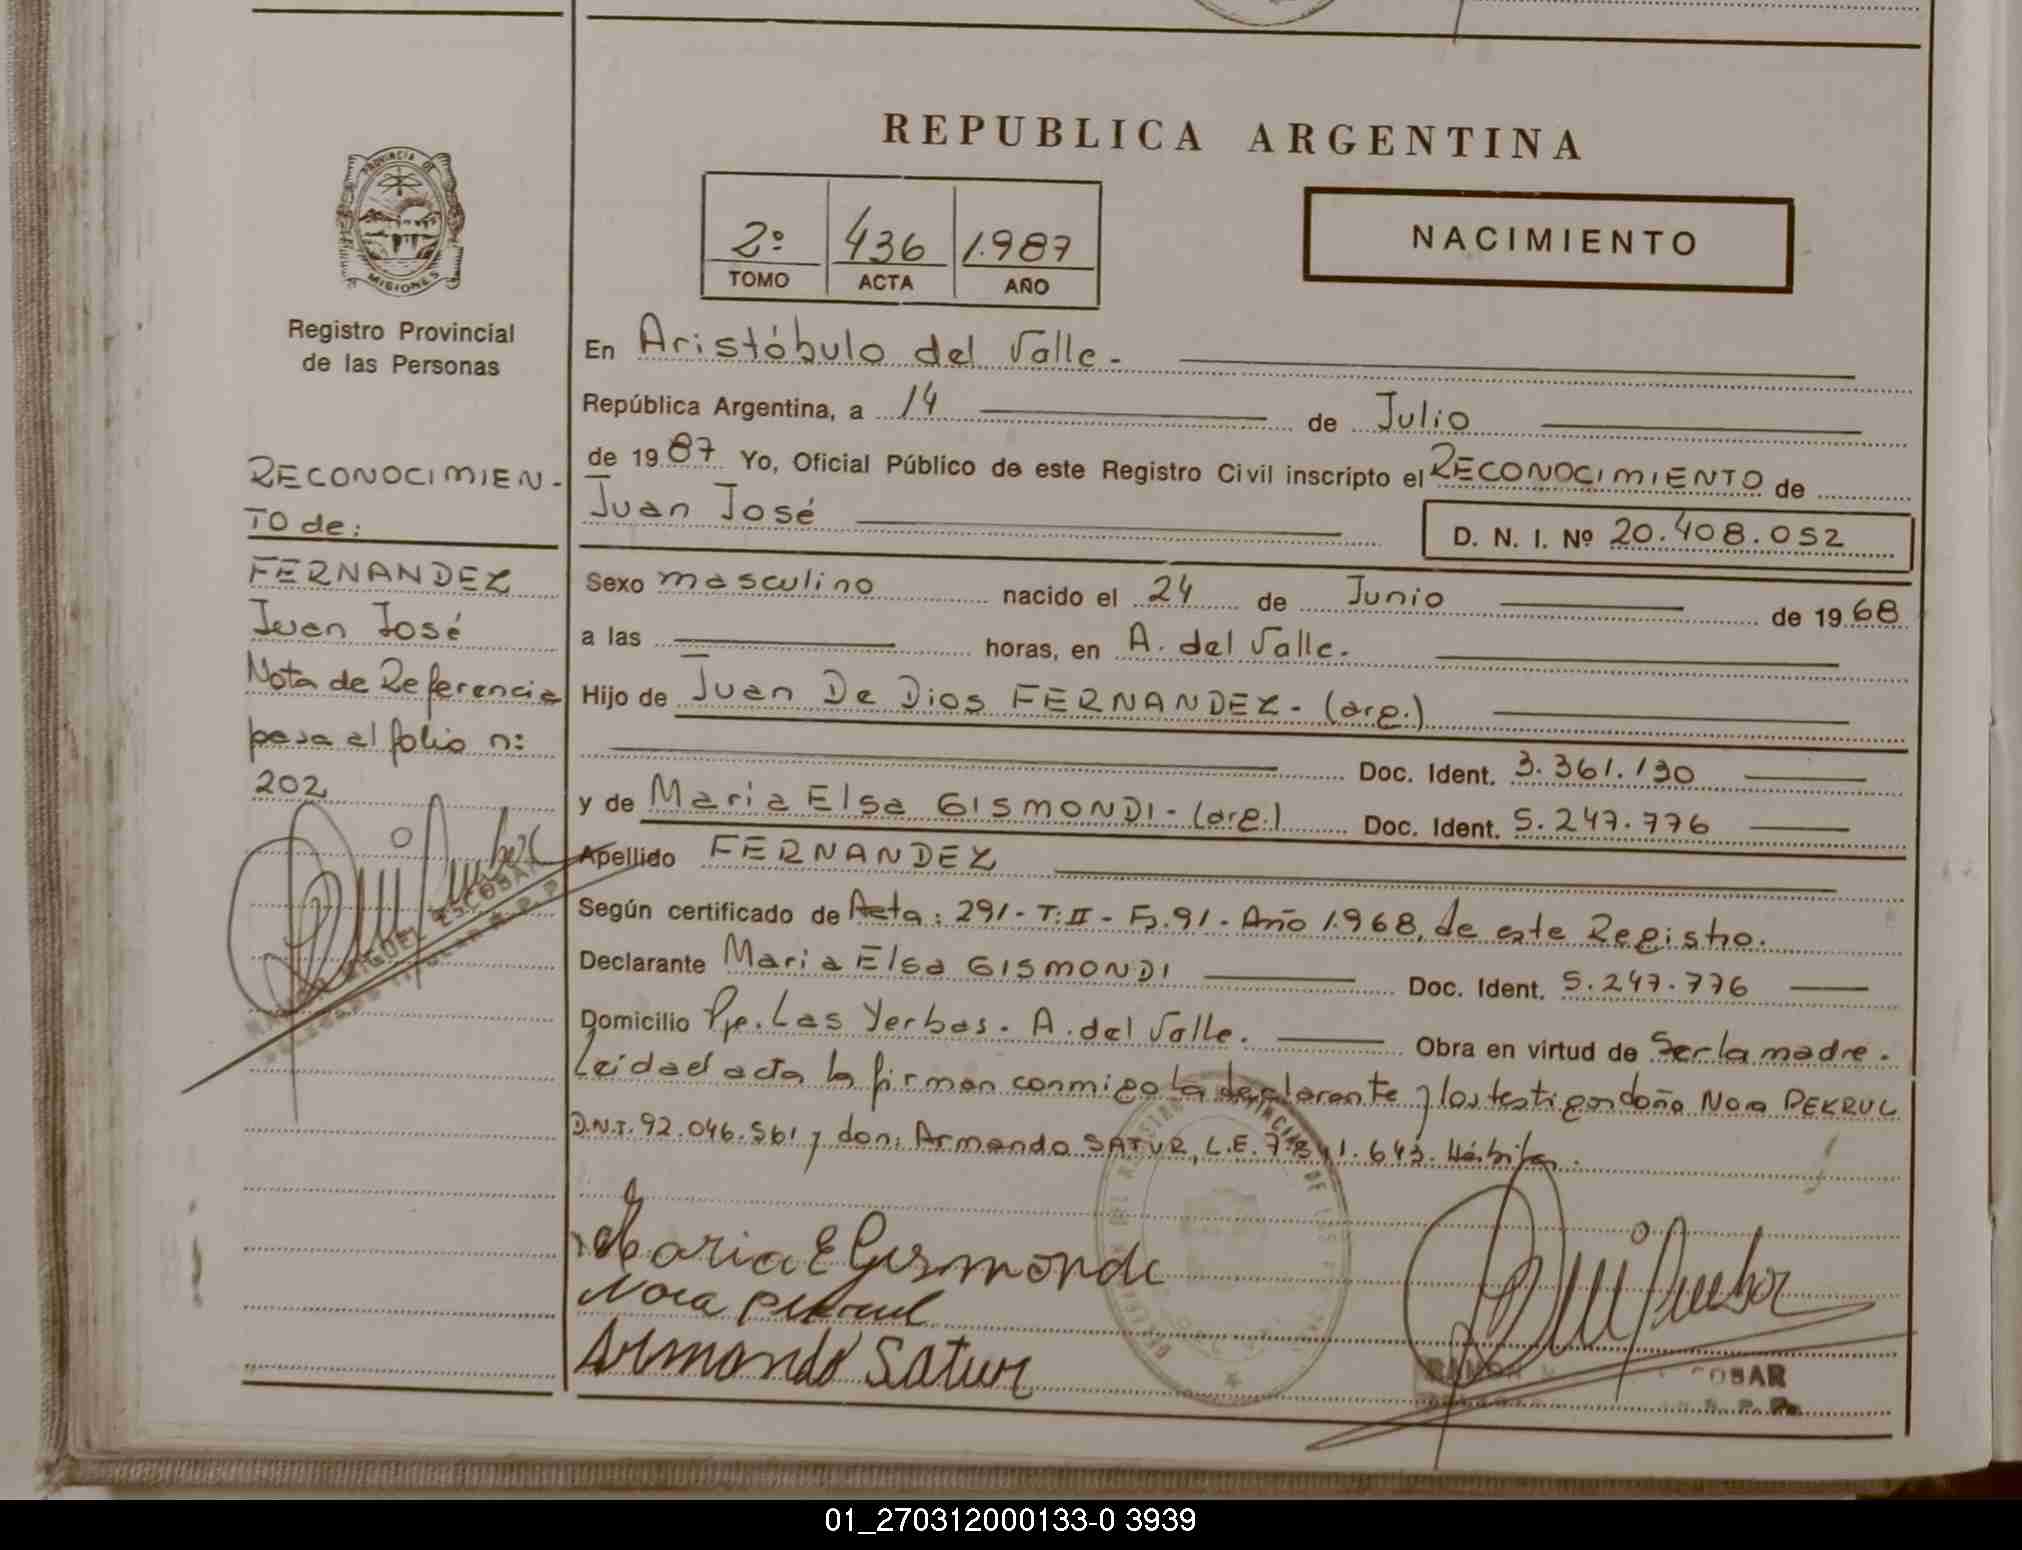 REPUBLICA ARGENTINA
PROVINCIA DE
MISIONES
Registro Provincial
de las Personas
2º 436 1.987
TOMO ACTA AÑO
NACIMIENTO
En Aristóbulo del Valle.-
República Argentina, a 14 de Julio
de 1987 Yo, Oficial Público de este Registro Civil inscripto el RECONOCIMIENTO de
Juan José
D. N. I. Nº 20.408.052
Sexo masculino nacido el 24 de Junio de 1968
a las horas, en A. del Valle.-
Hijo de Juan De Dios FERNANDEZ - (arg.)
Doc. Ident. 3.361.190
y de Maria Elsa GISMONDI - (arg.) Doc. Ident. 5.247.776
Apellido FERNANDEZ
Según certificado de Acta: 291 - T: II - F. 91 - Año 1.968, de este Registro.
Declarante Maria Elsa GISMONDI Doc. Ident. 5.247.776
Domicilio Pje. Las Yerbas. A. del Valle. Obra en virtud de Ser la madre.
Leida el acta la firman conmigo la declarante y los testigos doña Nora PEKRUL
D.N.I. 92.046.561 y don: Armando SATUR, L.E. 7.541.643. Hábiles.
Maria E Gismondi
Nora Pekrul
Armando Satur
RAMON COBAR
RECONOCIMIEN-
TO de:
FERNANDEZ
Juan José
Nota de Referencia
pasa al folio n:
202
MIGUEL ESCOBAR
01_270312000133-0 3939